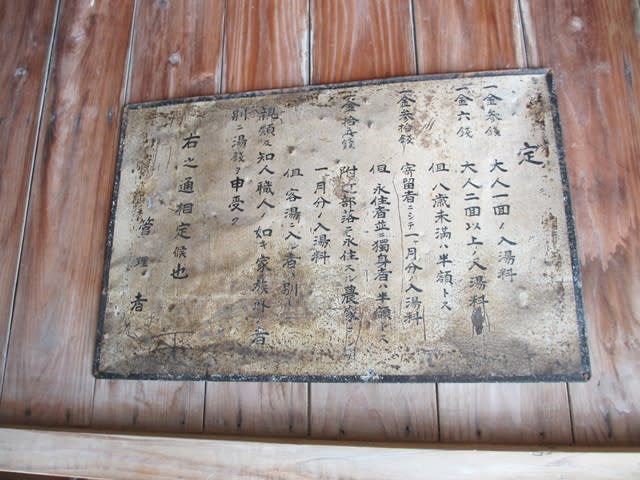 定
一金参銭 大人一面ノ入湯料
一金六銭 大人二面以上ノ入湯料
但八歳未満ハ半額トス
一金参拾銭 寄留者ニシテ一ヶ月分ノ入湯料
但永住者並ニ獨身者ハ半額トス
一金拾五銭 附近部落ニ永住スル農家ニシテ
一ヶ月分ノ入湯料
但客湯ニ入ル者ハ別
親類及知人職人ノ如キ家族外ノ者
別ニ湯銭ヲ申受ク
右之通相定候也
管理者